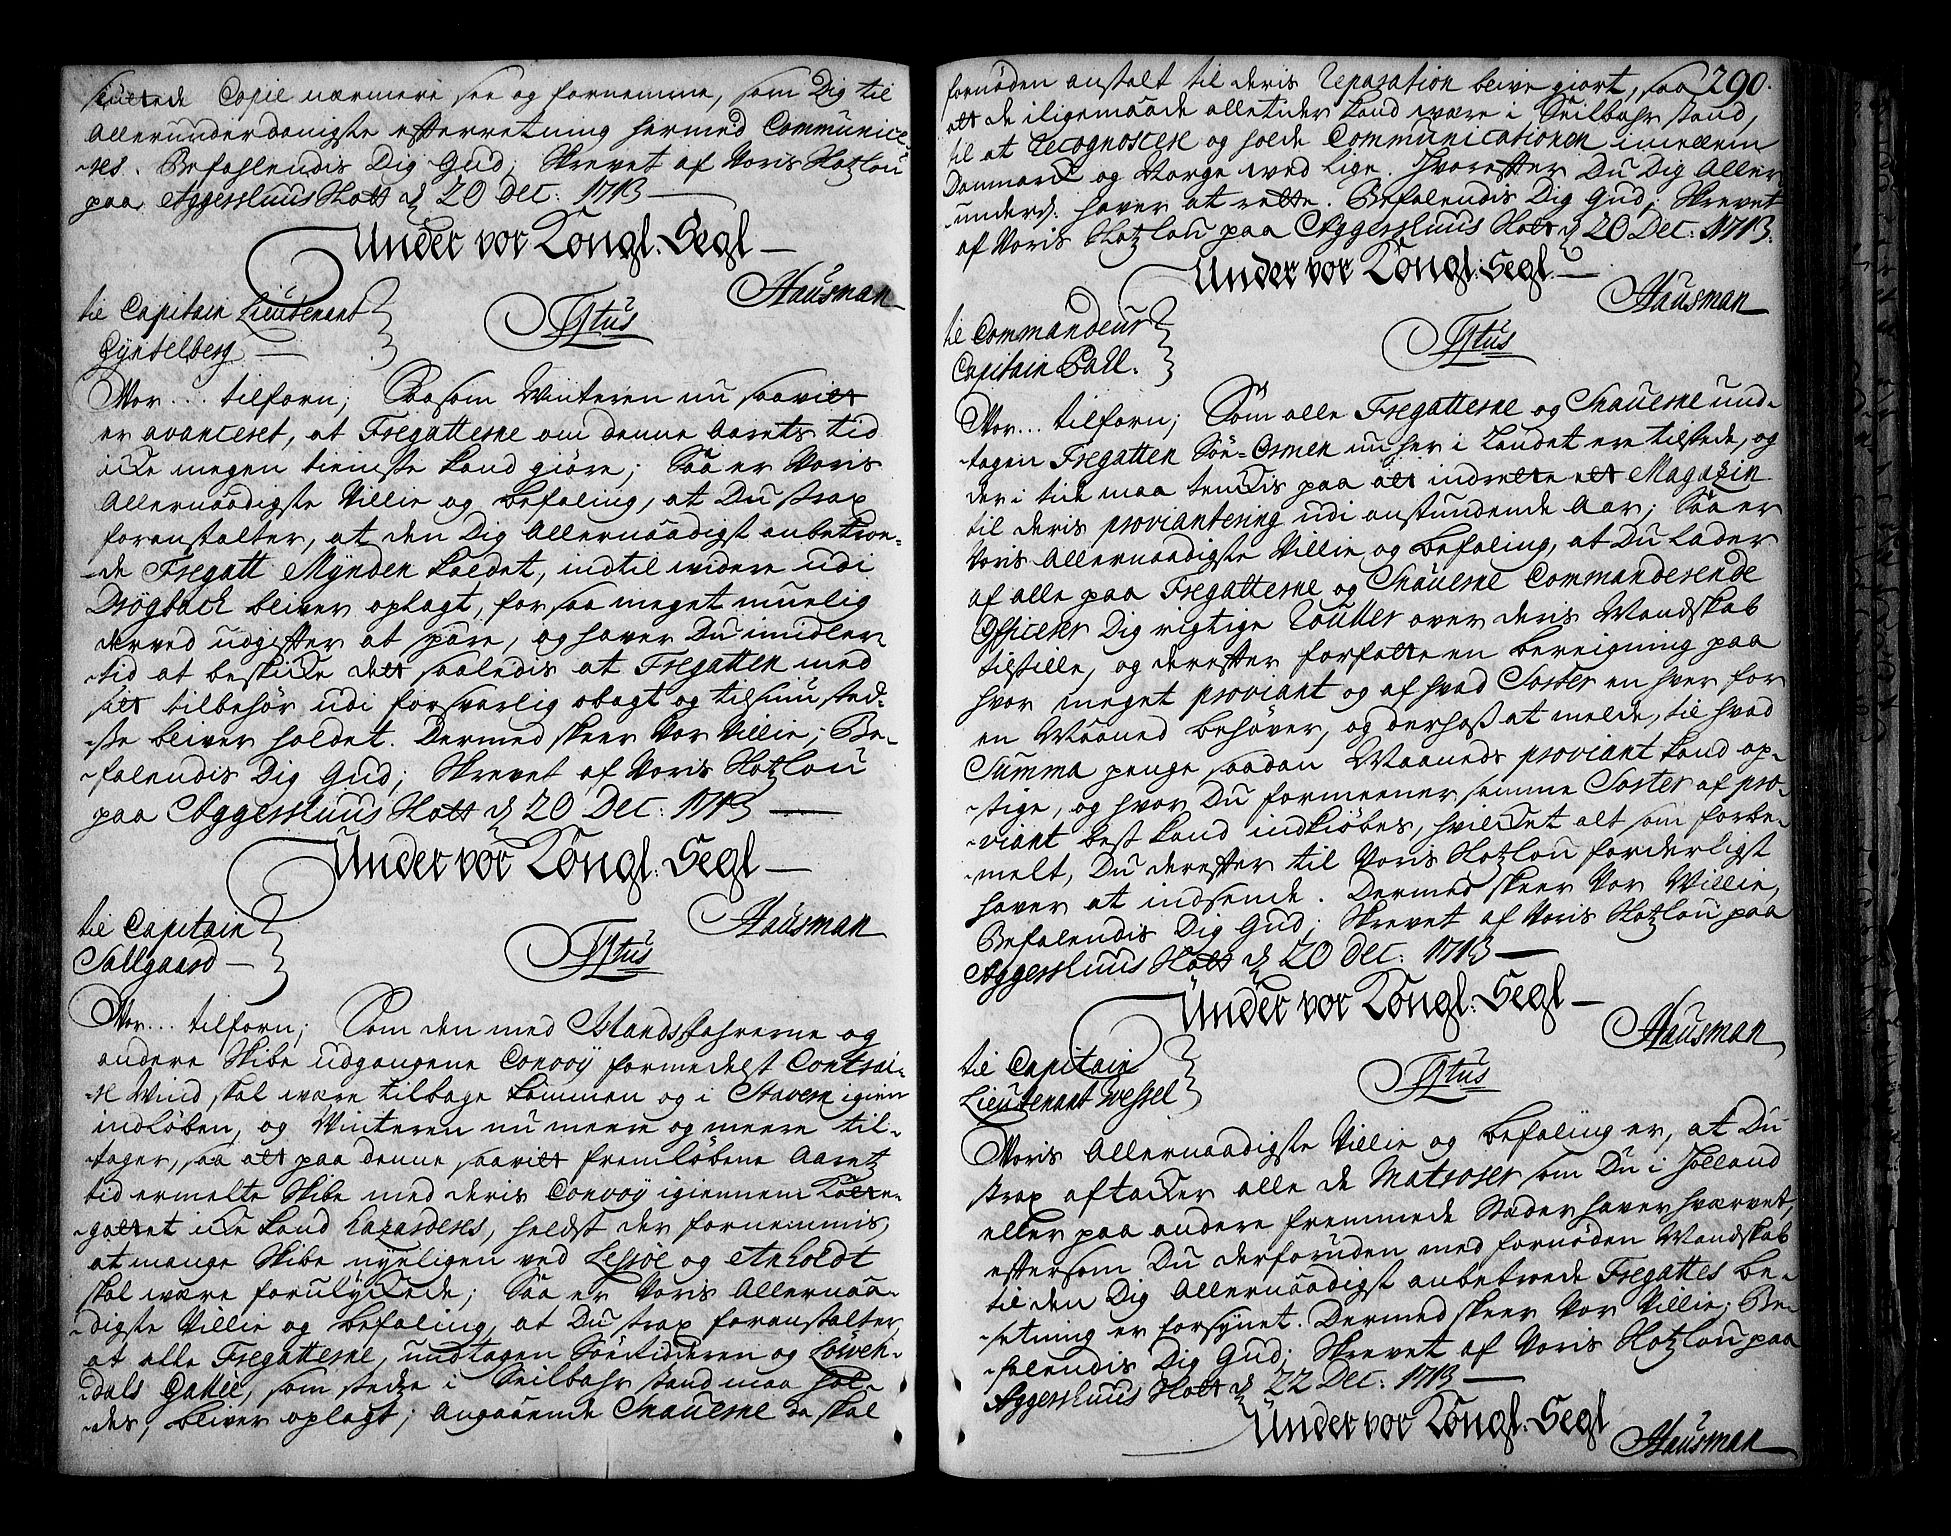 Copie nærmere see og fornemme, som Dig til
Allerunderdanigste efterretning hermed Communice-
-res. Befahlendis Dig Gud; Skrevet af Voris Hotzlou
paa Aggershuus Slott d 20 Dec. 1713
Under vor Kongl. Segl
Hausman
til Capitain Lieutenant
Gyntelberg
Tytus
Vor... tilforn; Saasom Winteren nu saavit
er avanceret, at Fregatterne om denne Aarets tid
icke megen tieniste kand giøre; Saa er Voris
Allernaadigste Villie og befaling, at Du strax
foranstalter, at den Dig Allernaadigst anbetroe-
-de Fregatt Mynden kaldet, indtil widere udi
Drøgback bliver oplagt, for saa meget muelig
derved udgifter at spare, og haver Du imidler
-tid at beskicke dett saaledis at Fregatten med
sitt tilbehør udi forsvarlig obagt og tilsiun sted-
-sse bliver holdet. Dermed skeer Vor Villie; Be-
-falendis Dig Gud; Skrevet af Voris Hotzlou
paa Aggershuus Slott d 20 Dec: 1713
Under vor Kongl. Segl
Hausman
til Capitain
Sallgaard
Tytus
Vor... tilforn; Som den med Islandsfahrerne og
andere Skibe udgangene Convoy formedelst Contrai-
-re Wind skal være tilbage kommen og i Stavern igien
indløben, og Winteren nu meere og meere til-
-tager, saa att paa denne saavitt fremløbene Aaretz
tid ermelte Skibe med deris Convoy igiennem Katte-
-gattet icke kand hazarderes, heldst der fornemmis,
at mange Skibe nyeligen ved Lessøe og Anholdt
skal være forulyckede; Saa er Voris Allernaa-
-digste Villie og befaling, at Du strax foranstalter,
at alle Fregatterne, undtagen Søeridderen og Løwen-
-dals Gallei, som stedze i Seilbahr stand maa hol-
-des, bliver oplagt; Angaaende Snauerne da skal
290.
fornøden anstalt til deris Reparation blive giort, saa
att de iligemaade alletider kand være i Seilbahr stand,
til at Recognoscere og holde Communicationen imellem
Danmarck og Norge ved lige. Hvorefter Du Dig Aller
underd: haver at rette. Befalendis Dig Gud; Skrevet
af Voris Hotzlou paa Aggershuus Slott d 20 Dec: 1713.
Under vor Kongl. Segl.
Hausman
til Commandeur
Capitain Pall.
Tytus
Vor... tilforn; Som alle Fregatterne og Snauerne und-
-tagen Fregatten Søe-Ormen nu her i Landet ere tilstede, og
der i tide maa tenckis paa att indrette ett Magazin
til deris proviantering udi anstundende Aar; Saa er
Voris Allernaadigste Villie og befaling, at Du lader
af alle paa Fregatterne og Snauerne Commanderende
Officerer Dig rigtige Rouller over deris Mandskab
tilstille, og derefter forfatte en beregning paa
hvor meget proviant og af hvad Sorter en hver for
en Maaned behøver, og derhos at melde, til hvad
Summa penge saadan Maaneds proviant kand op-
-stige, og hvor Du formeener samme Sorter af pro-
-viant best kand indkiøbes, hvilcket alt som forbe-
-melt, Du derefter til Voris Hotzlou forderligst
haver at indsende. Dermed skeer Vor Villie,
Befalendis Dig Gud; Skrevet af Voris Hotzlou paa
Aggershuus Slott d 20 Dec: 1713
Under vor Kongl. Segl
Hausman
til Capitain
Lieutenant Wessel
Tytus
Voris Allernaadigste Villie og befaling er, at Du
strax aftacker alle de Matroser som Du i Holland
eller paa andere fremmede Steder haver hværvet,
eftersom Du derforuden med fornøden Mandskab
til den Dig Allernaadigst anbetroede Fregattes be-
-setning er forsynet. Dermed skeer Vor Villie; Be-
-falendis Dig Gud; Skrevet af Voris Hotzlou paa
Aggershuus Slott d 22 Dec: 1713
Under vor Kongl. Segl
Hausman